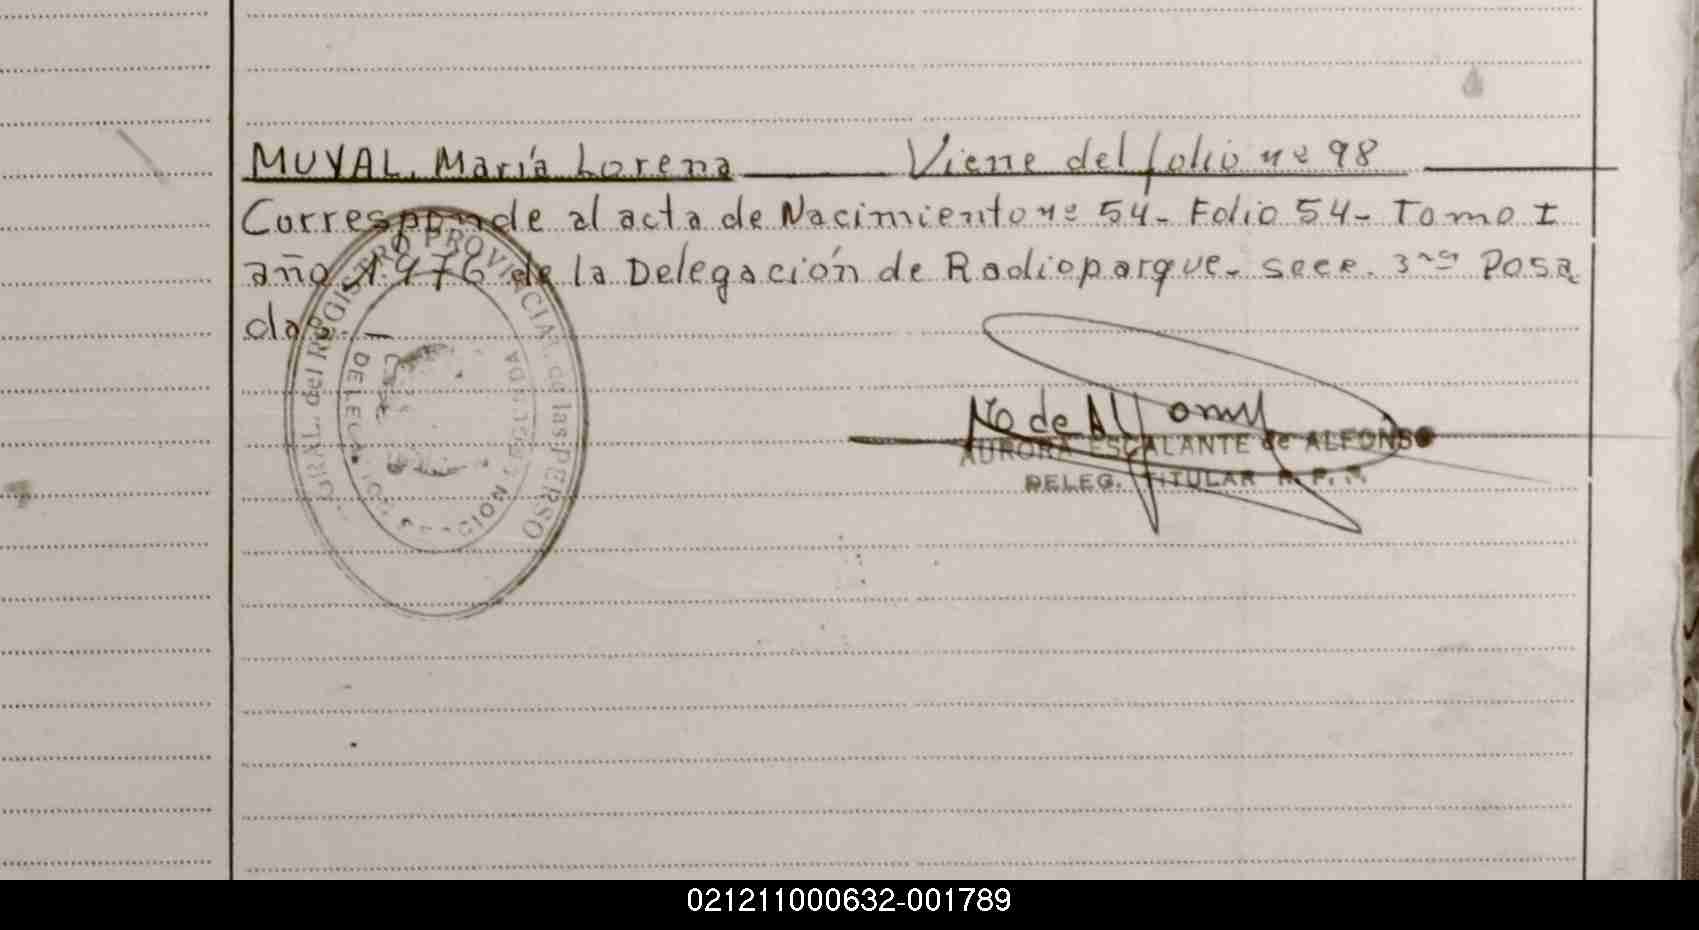 MUYAL, María Lorena — Viene del folio nº 98 —
Corresponde al acta de Nacimiento nº 54- Folio 54- Tomo I
año 1976 de la Delegación de Radioparque- secc. 3ra Posa
das. —
GRAL. del REGISTRO PROVINCIAL de las PERSO
DELEGACION
No de Alfonso
AURORA ESCALANTE de ALFONSO
DELEG. TITULAR R. P. P.
021211000632-001789